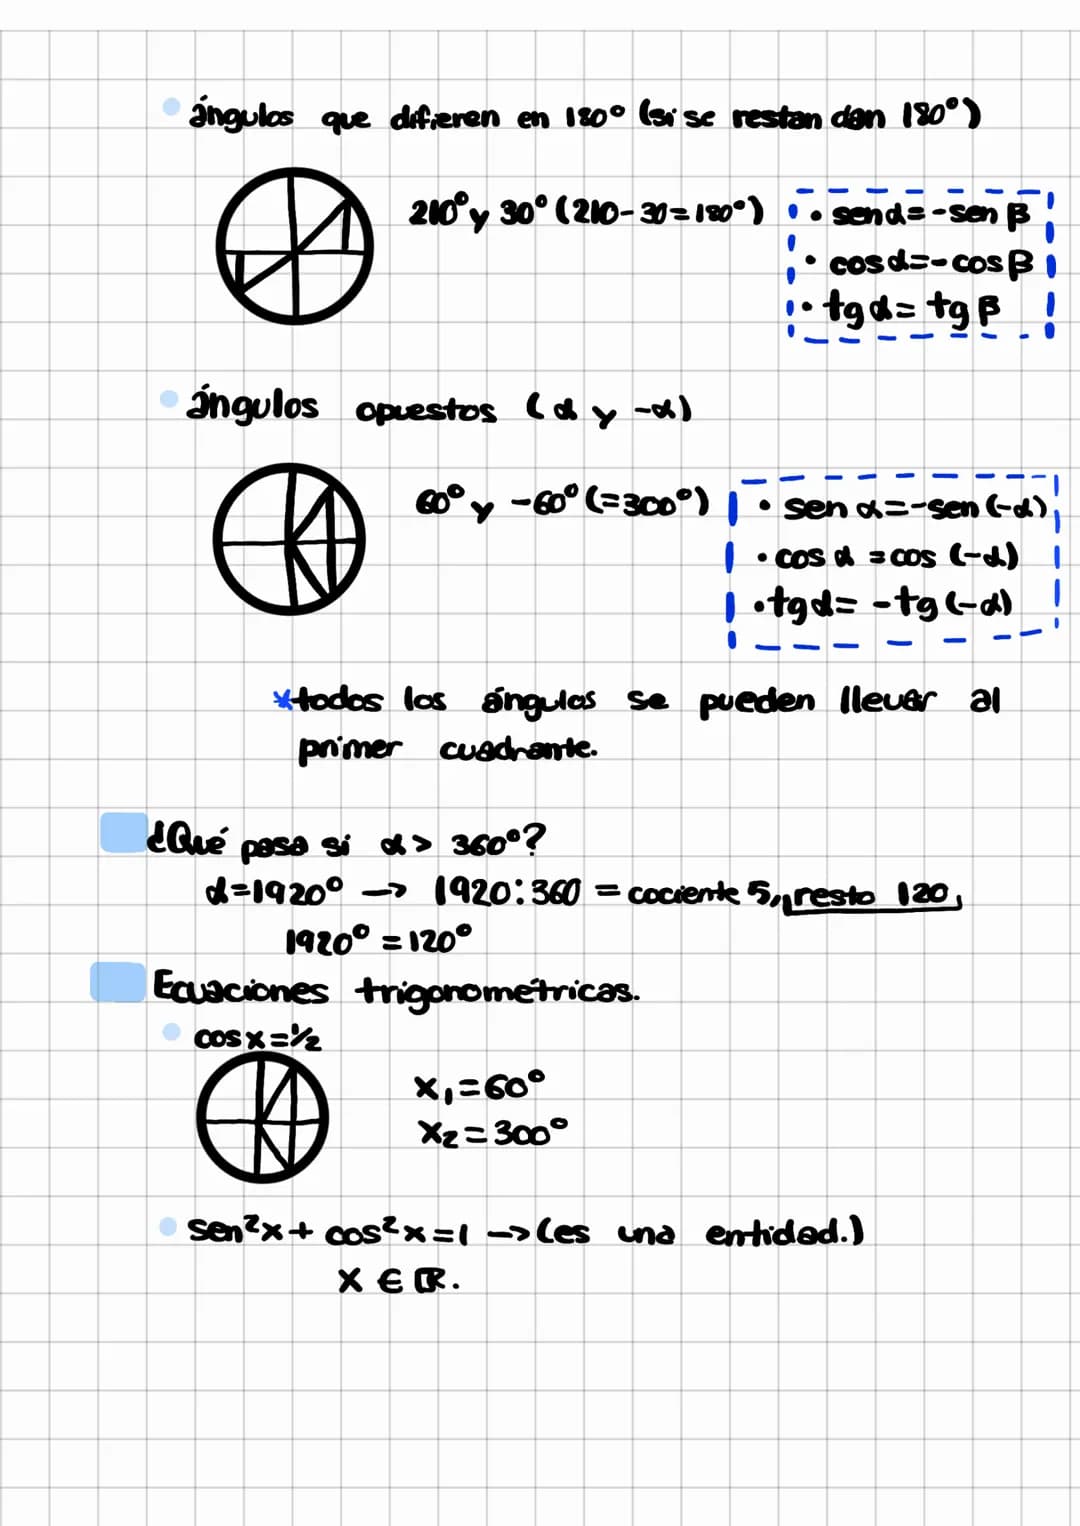 ángulos que difieren en 180° (si se restan dan 180°)
210° y 30° (210-30=180°)
• sen α = -sen β
• cos α = -cos β
• tg α = tg β
ángulos opuestos (α y -α)
60° y -60° (=300°)
• sen α = -sen (-α)
• cos α = cos (-α)
• tg α = -tg (-α)
*todos los ángulos se pueden llevar al
primer cuadrante.
¿Qué pasa si α > 360°?
α=1920° → 1920:360 = cociente 5, resto 120,
1920° = 120°
Ecuaciones trigonométricas.
cos x = 1/2
x₁ = 60°
x₂ = 300°
sen²x + cos²x = 1 → (es una entidad.)
x ∈ ℝ.